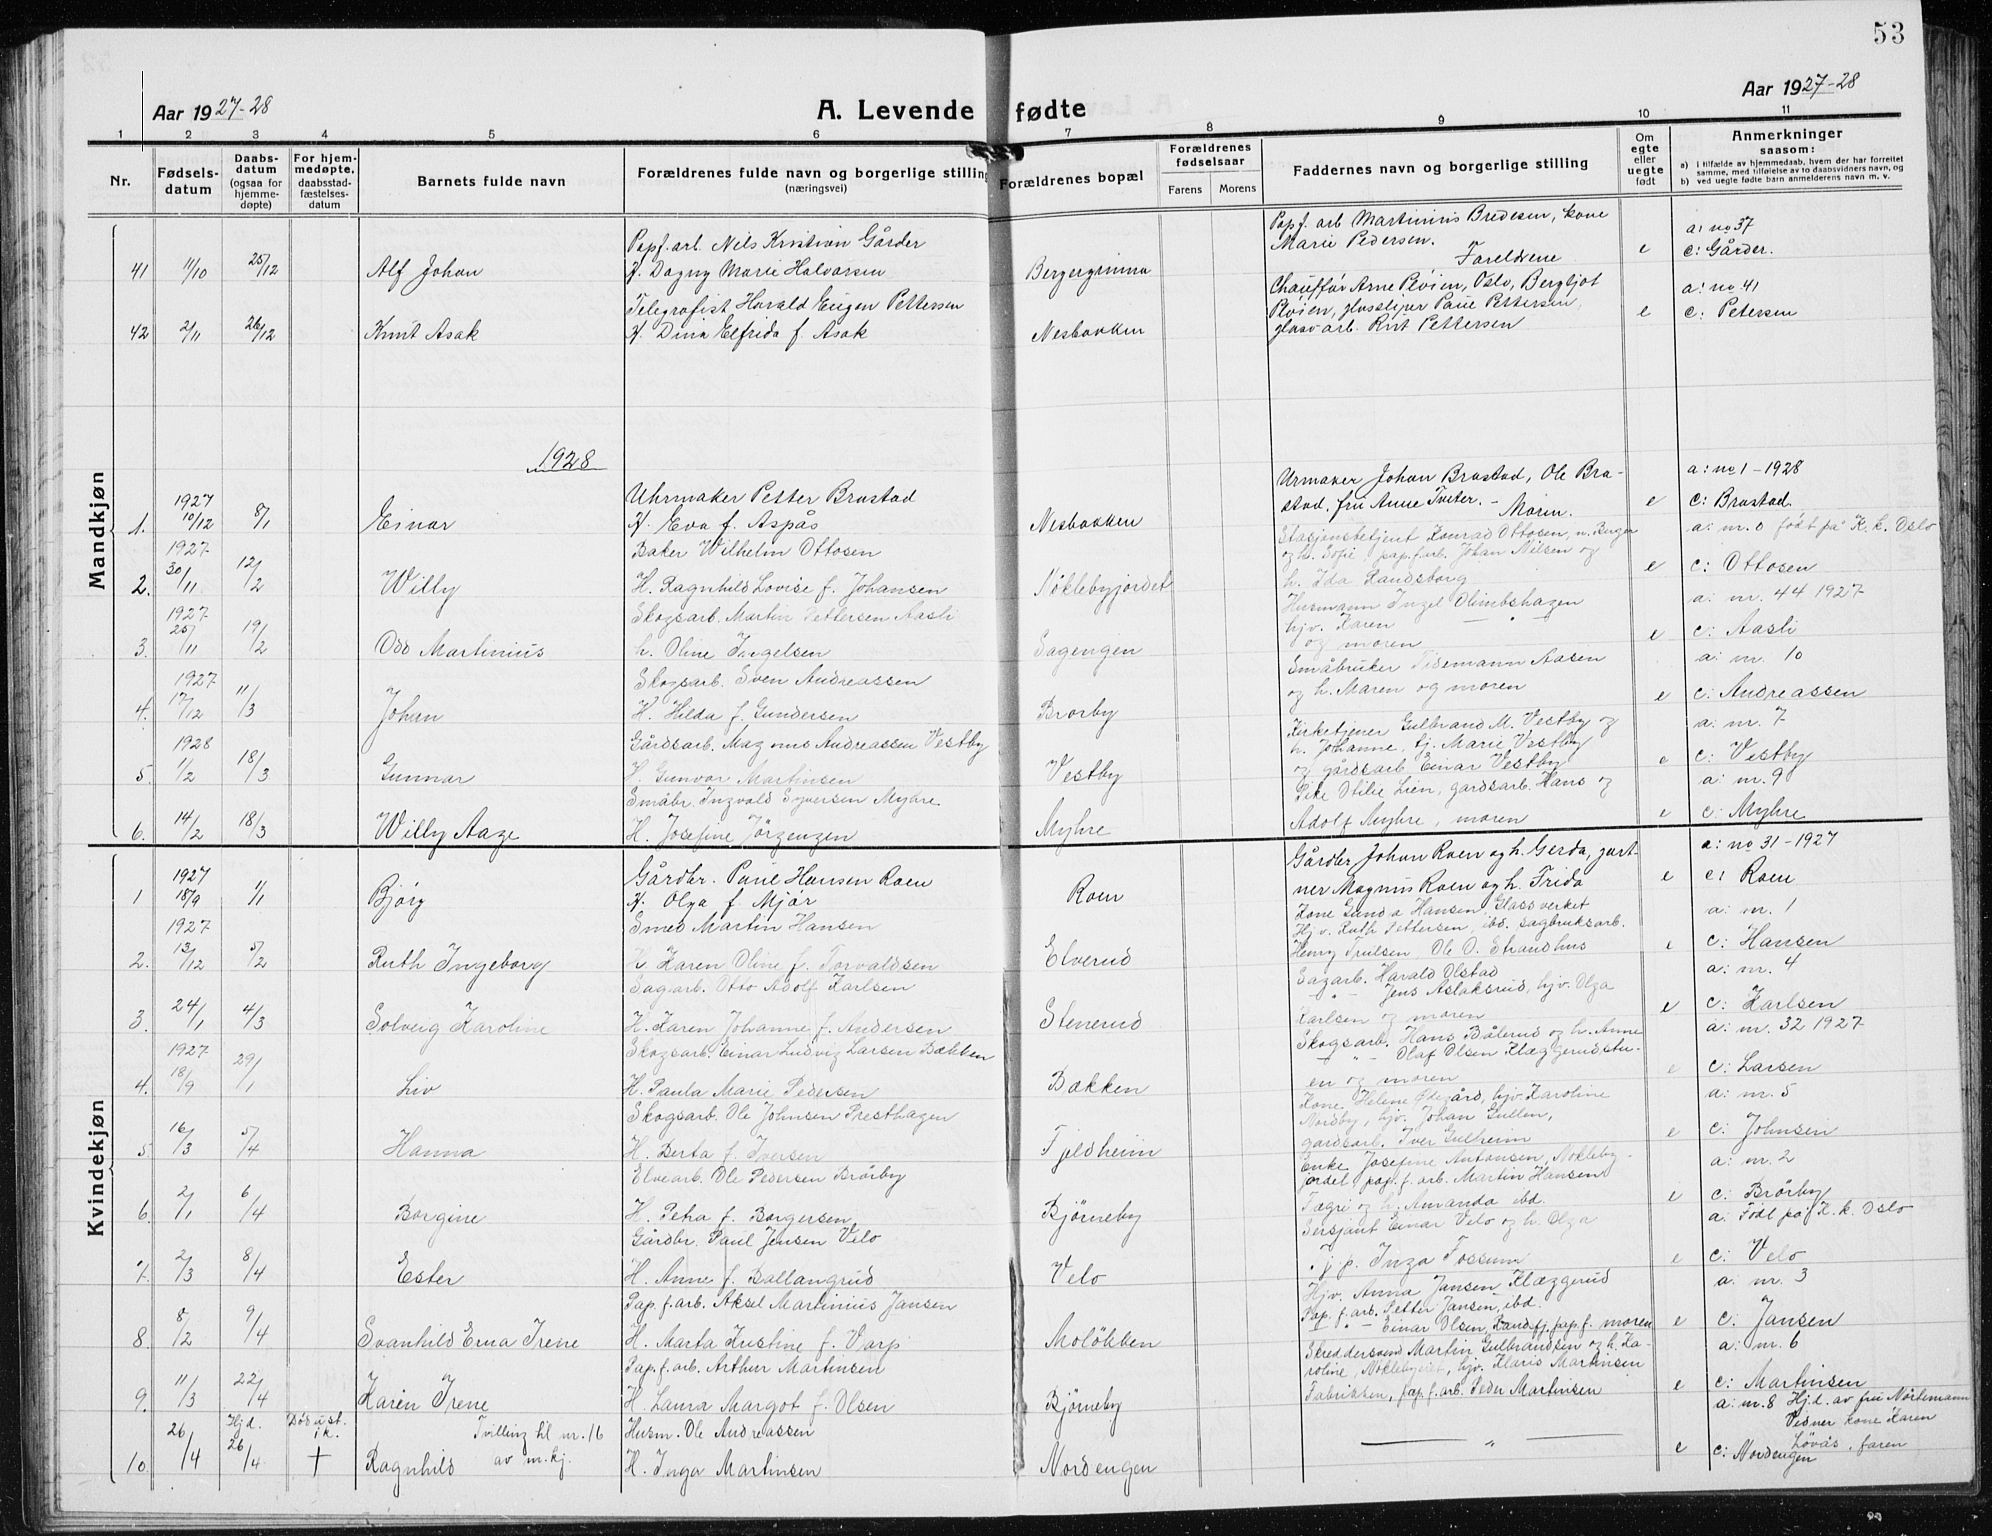 53
Aar 1927-28
A. Levende fødte
Aar 1927-28
1 2 3 4 5 6 7 8 9 10 11
Nr.
Fødsels-datum
Daabs-datum (ogsaa for hjemme-døpte)
For hjem-medøpte, daabsstad-fæstelses-datum
Barnets fulde navn
Forældrenes fulde navn og borgerlige stilling (næringsvei)
Forældrenes bopæl
Forældrenes fødselsaar
Farens Morens
Faddernes navn og borgerlige stilling
Om egte eller uegte født
Anmerkninger saasom:
a) i tilfælde av hjemmedaab, hvem der har forrettet samme, med tilføielse av to daabsvidners navn, og
b) ved uegte fødte barn anmelderens navn m. v.
Mandkjøn
Papf. arb. Nils Kristian Gårder
Papf. arb Martinius Bredesen, kone
Marie Pedersen.
Foreldrene
a: no 37
c: Gårder.
41 11/10 25/12 Alf Johan
H. Dagny Marie Halvorsen
Bergergrinna
e
Telegrafist Harald Eugen Pettersen
Chauffør Arne Pløien, Oslo, Bergljot
Pløien, glassliper Paul Pettersen,
glassarb. Knut Pettersen
a: no 41
c: Petersen
42 2/11 26/12 Knut Asak
H. Dina Elfrida f. Asak
Nesbakken
e
1928
1927
Uhrmaker Petter Brastad
Urmaker Johan Brastad, Ole Bra-
stad, fru Anne Tveter. - Moren.
a: no 1 - 1928
c: Brastad.
1. 10/12 8/1 Einar
H. Eva f. Aspås
Nesbakken
e
1927
Baker Wilhelm Ottosen
Stasjonsbetjent Konrad Ottosen, n. Berger
og h. Sofie, pap.f.arb. Johan Nilsen og
h. Ida Randsborg
a: nr. 0 født på K. k. Oslo
c: Ottosen
2. 30/11 12/2 Willy
H. Ragnhild Lovise f. Johansen
Nøklebyjordet
e
1927
Skogsarb. Martin Pettersen Aasli
Husmann Ingel Olimbshagen
hjv. Karen
og moren
a: nr. 44 1927
c: Aasli
3. 25/11 19/2 Odd Martinius
h. Oline Ingelsen
Sagengen
e
1927
Skogsarb. Sven Andreassen
Småbruker Tidemann Aasen
og h. Maren og moren
a: nr. 10
c: Andreassen
4. 17/12 11/3 Johan
H. Hilda f. Gundersen
Brorby
e
1928
Gårdsarb. Magnus Andreassen Vestby
Kirketjener Gulbrand M. Vestby og
h. Johanne, tj. Marie Vestby
og gårdsarb Einar Vestby
a: nr. 7
c: Vestby
5. 1/2 18/3 Gunnar
H. Gunvor Martinsen
Vestby
e
Småbr. Ingvald Syversen Myhre
Pike Otilie Lien, gardsarb. Hans og
Adolf Myhre, moren
a: nr. 9
c: Myhre
6. 14/2 18/3 Willy Aage
H. Josefine Jörgengen
Myhre
e
Kvindekjøn
1927
Gårdbr. Paul Hansen Roen
Gårdbr Johan Roen og h. Gerda, gart-
ner Magnus Roen og h. Frida
a: no 31 - 1927
c: Roen
1 18/9 1/1 Bjørg
H. Olga f. Mjør
Roen
e
1927
Smed Martin Hansen
Kone Gunda Hansen, Glassverket
Hjv. Ruth Pettersen, ibd. sagbruksarb.
Henry Trulsen, Ole O. Strandhus
a: nr. 1
c: Hansen
2. 13/12 5/2 Ruth Ingeborg
H Karen Oline f. Torvaldsen
Elverud
e
Sagarb. Otto Adolf Karlsen
Sagarb. Harald Olstad
- " - Jens Aslaksrud, hjv. Olga
Karlsen og moren
a: nr. 4
c: Karlsen
3. 24/1 4/3 Solveig Karoline
H. Karen Johanne f. Andersen
Stenerud
e
1927
Skogsarb. Einar Ludvig Larsen Bakken
Skogsarb. Hans Bålerud og h. Anne
- " - Olaf Olsen Klæggerudstu-
en og moren
a: nr. 32 1927
c: Larsen
4. 18/9 29/1 Liv
H. Paula Marie Pedersen
Bakken
e
Skogsarb. Ole Johnsen Presthagen
Kone Helene Ødegård, hjv. Karoline
Nordby, hjv. Johan Gullen,
gardsarb. Iver Gulheim
a: nr. 5
c: Johnsen
5. 16/3 5/4 Hanna
H. Berta f. Iversen
Fjeldheim
e
Elvearb. Ole Pedersen Brörby
Enke Josefine Antonsen, Nökleby-
jordet pap. f. arb. Martin Hansen
Fagri og h. Amanda ibd.
a: nr. 2
c: Brörby
6. 2/1 6/4 Borgine
H. Petra f. Borgersen
Bjørneby
e
Gårdbr. Paul Jensen Velo
Sersjant Einar Velo og h. Olga
tj. p. Inga Fossum
a: Født på K. k. Oslo
c: Velo
7. 2/3 8/4 Ester
H. Anne f. Ballangrud
Velo
e
Pap. f. arb. Aksel Martinius Jansen
Hjv. Anna Jansen, Klæggerud
Pap. f. arb. Petter Jansen, ibd.
- " - Einar Olsen, Randsfj. pap. f. moren
a: nr. 3
c: Jansen
8 8/2 9/4 Svanhild Erna Irene
H. Marta Kristine f. Varp
Moløkken
e
Pap. f. arb. Arthur Martinsen
Skreddersvend Martin Gulbrandsen og h. Ka-
roline, Nøklebyeiet, hjv. Klaris Martinsen
Fabrikken, pap. f. arb. Peder Martinsen
a: nr. 6
c: Martinsen
9. 11/3 22/4 Karen Irene
H. Laura Margot f. Olsen
Bjørneby
e
Hjd.
Død ust. ik.
Tvilling til nr. 16
av m.kj.
Husm. Ole Andreassen
a: nr. 8 Hj.d. av fru Nörtemann
Vidner kone Karen
Løvås, faren
c: Nordengen
10. 26/4 26/4 † Ragnhild
H. Inga Martinsen
Nordengen
— " —
e